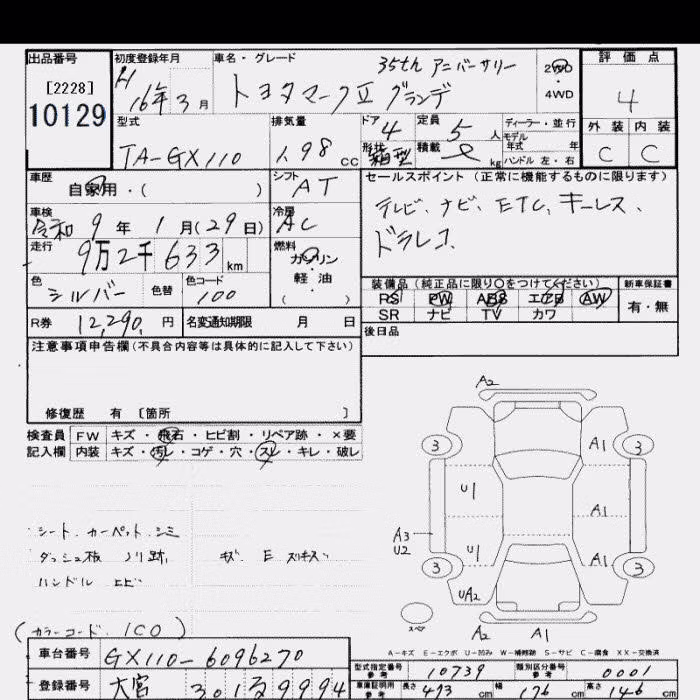 出品番号 初度登録年月 車名・グレード 35th アニバーサリー 2WD ・ 4WD 評価点
[2228] H16年3月 トヨタマークⅡ グランデ 4
10129
型式 排気量 ドア 4 定員 5人 ディーラー・並行 外装 内装
TA-GX110 1.98cc 形状 箱型 積載 kg モデル年式 年 ハンドル 左・右 C C
車歴 自家用・( ) シフト AT セールスポイント (正常に機能するものに限ります)
車検 令和9年1月(29日) 冷房 AC テレビ、ナビ、ETC、キーレス、
走行 9万2千633km 燃料 ガソリン・軽油 ( ) ドラレコ
色 シルバー 色替 色コード 100 装備品 (純正品に限り○をつけてください) 新車保証書
RS PW ABS エアB AW 有・無
R券 12,290.円 名変通知期限 月 日 SR ナビ TV カワ
注意事項申告欄(不具合内容等は具体的に記入して下さい) 後日品
修復歴 有 [箇所 ]
検査員 FW キズ・飛石・ヒビ割・リペア跡・×要
記入欄 内装 キズ・汚レ・コゲ・穴・スレ・キレ・破レ
A2
3 A1 3
U1 A1
A3
U2
U1 A1
3 3
UA2
スペア
A2 A1
シート、カーペット、シミ
ダッシュ板 ノリ跡、 キズ E
ハンドル ヒビ
(カラーコード. 1C0)
A-キズ E-エクボ U-凹み W-補修跡 S-サビ C-腐食 XX-交換済
車台番号 GX110-6096270
型式指定番号 参考 10739 類別区分番号 参考 0001
登録番号 大宮 301 9994
車庫証明用 参考 長さ 473cm 幅 176cm 高さ 146cm